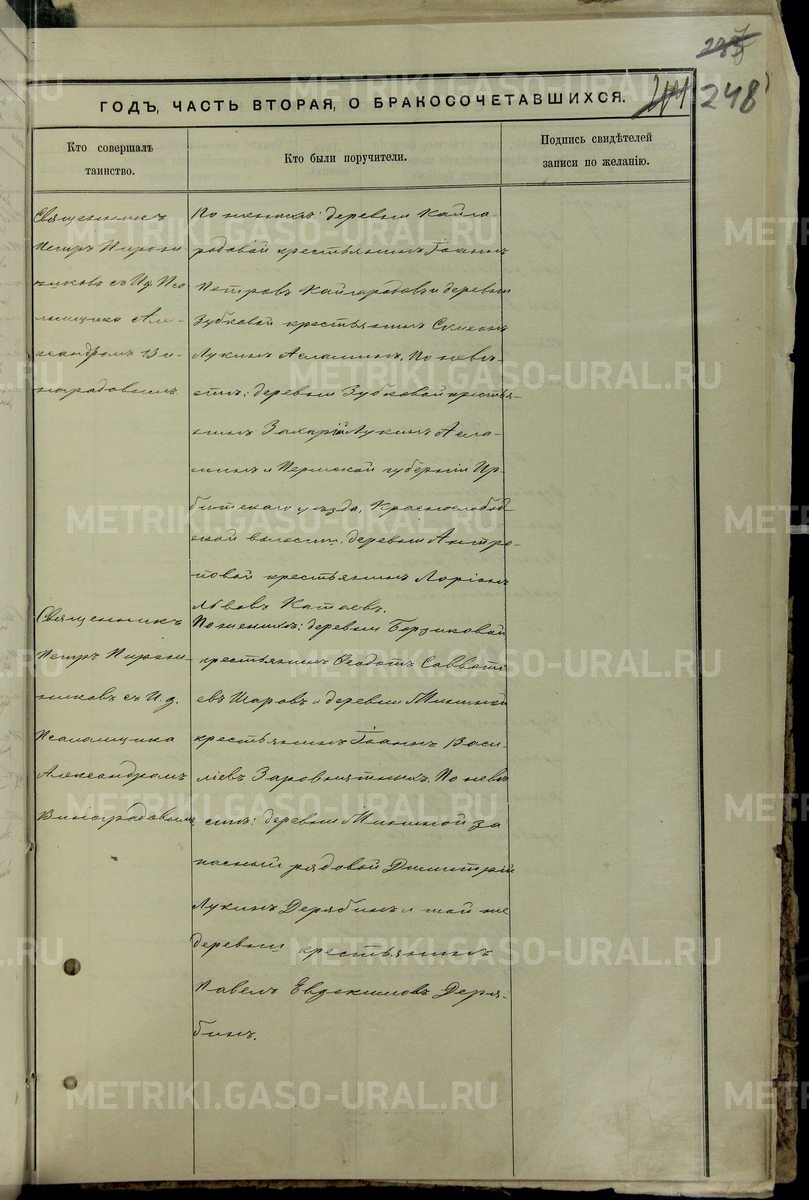 248
ГОДЪ, ЧАСТЬ ВТОРАЯ, О БРАКОСОЧЕТАВШИХСЯ.
Кто совершалъ
таинство.
Кто были поручители.
Подпись свидѣтелей
записи по желанію.
Священникъ
Петръ
съ И.д. Пса
ломщика Але-
ксандромъ Ви-
ноградовымъ
По женихѣ: деревни Кайго-
родовой крестьянинъ Іоаннъ
Петровъ Кайгородовъ и деревни
Зубковой крестьянинъ Симеонъ
Лукинъ Асламинъ. По невѣ-
стѣ: деревни Зубковой крестья-
нинъ Захарій Лукинъ Асла-
минъ и Пермской губерніи Ир-
битскаго уѣзда, Краснослобод-
ской волости, деревни Антро-
повой крестьянинъ Ларіонъ
Львовъ Катаевъ.
Священникъ
Петръ
съ И.д.
Псаломщика
Александромъ
Виноградовымъ
По женихѣ: деревни Борзиковой
крестьянинъ Ѳеодотъ Савват
евъ Шаровъ и деревни Микиной
крестьянинъ Іоаннъ Васи-
ліевъ Заровнятныхъ. По невѣ
стѣ: деревни Микиной за
пасный рядовой Димитрій
Лукинъ Дерябинъ и той же
деревни крестьянинъ
Павелъ Евдокимовъ Деря-
бинъ.
METRIKI.GASO-URAL.RU